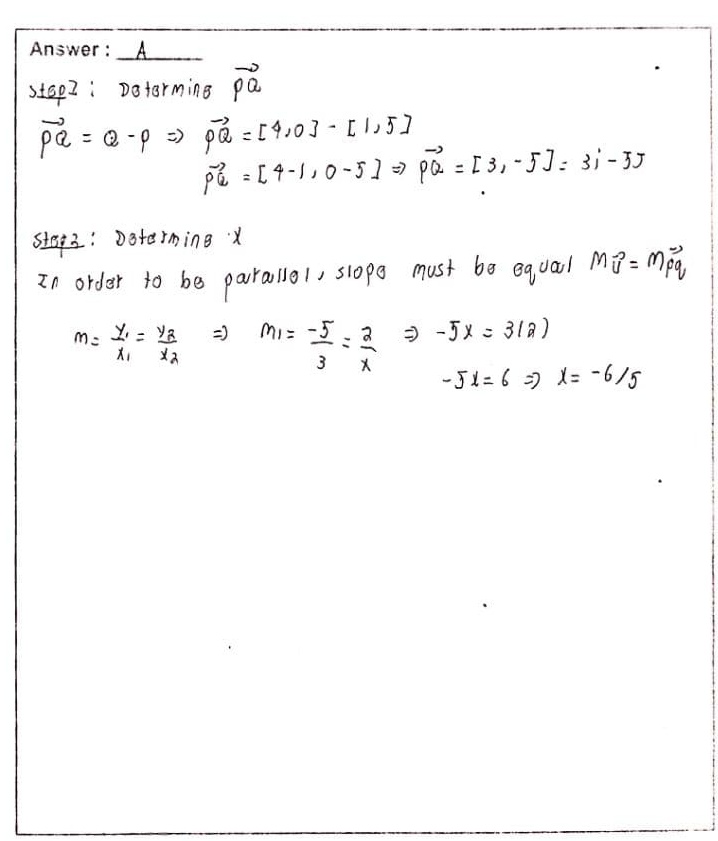 Answer : A
Step 1 : Determine \overrightarrow{PQ}
\overrightarrow{PQ} = Q - P ⇒ \overrightarrow{PQ} = [4,0] - [1,5]
\overrightarrow{PQ} = [4-1, 0-5] ⇒ \overrightarrow{PQ} = [3, -5] = 3i - 5j
Step 2 : Determine x
In order to be parallel, slope must be equal M\vec{u} = M\overrightarrow{PQ}
m = y₁/x₁ = y₂/x₂ ⇒ m₁ = -5/3 = 2/x ⇒ -5x = 3(2)
-5x = 6 ⇒ x = -6/5